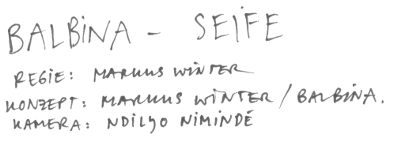 BALBiNA - SEiFE
REGiE: MARKUS WiNTER
KONZEPT: MARKUS WiNTER / BALBiNA.
KAMERA: NDiLYO NiMiNDÉ